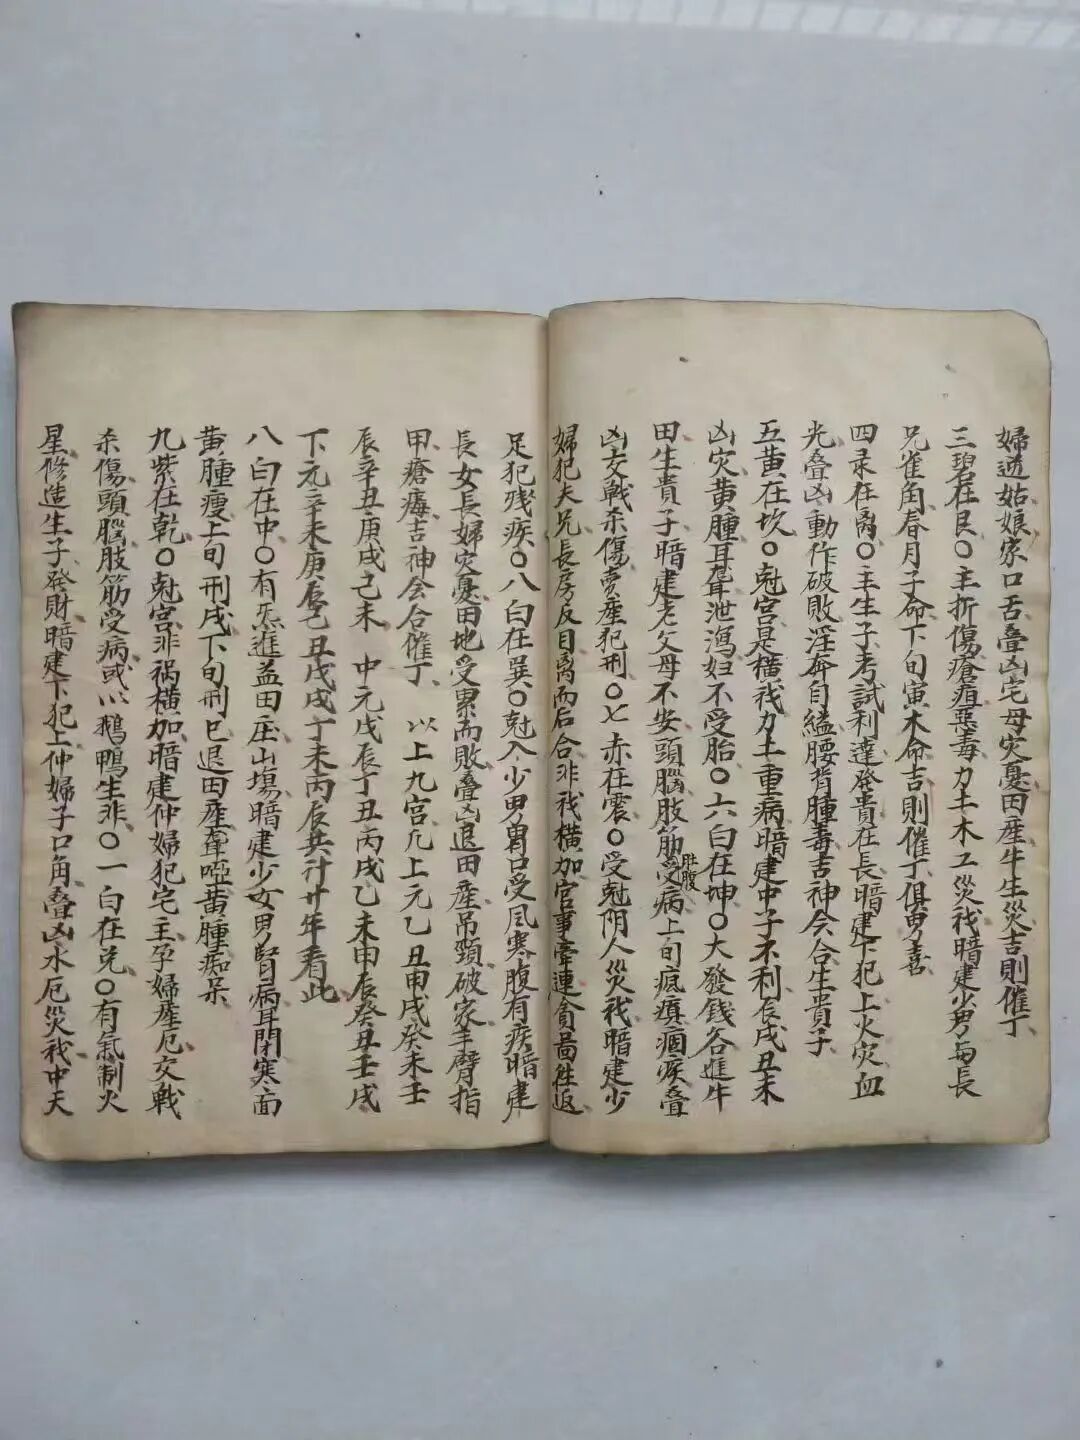 婦透姑娘家口舌叠凶宅母灾憂田産牛生災吉則催丁
三碧在艮〇主折傷瘡疽藥毒力土木工災代暗建少男与長
兄雀角春月子命下旬寅木命吉則催丁俱男喜
四彔在离〇主生子考試利達發貴在長暗建下犯上火灾血
光叠凶動作破敗淫奔自縊腰背腫毒吉神会合生貴子
五黄在坎〇尅宮是橫代力土重病暗建中子不利辰戌丑未
凶灾黄腫耳聋泄瀉妇不受胎〇六白在坤〇大發錢谷進牛
田生貴子暗建老父母不安頭腦肢筋受肚腹病上旬瘋瘨痼疾叠
凶交戰杀傷賣産犯刑〇七赤在震〇受尅阴人災代暗建少
婦犯夫兄長房反目离而后合非代橫加官事牽連貪啚往返
足犯殘疾〇八白在巽〇尅入少男胃口受風寒腹有疾暗建
長女長婦灾憂田地受累而敗叠凶退田産吊頸破家手臂指
甲瘡毒吉神会合催丁 以上九宮凡上元乙丑甲戌癸未壬
辰辛丑庚戌己未 中元戊辰丁丑丙戌乙未甲辰癸丑壬戌
下元辛未庚辰己丑戊戌丁未丙辰共計廿年看此
八白在中〇有炁進益田庄山塲暗建少女男腎病耳閉寒面
黄腫瘦上旬刑戌下旬刑巳退田産聾啞黄腫痴呆
九紫在乾〇尅宮非禍橫加暗建仲婦犯宅主孕婦産厄交戰
杀傷頭腦肢筋受病或以鵝鴨生非〇一白在兑〇有氣制火
星修造生子發財暗建下犯上仲婦子口角叠凶水厄災代中天